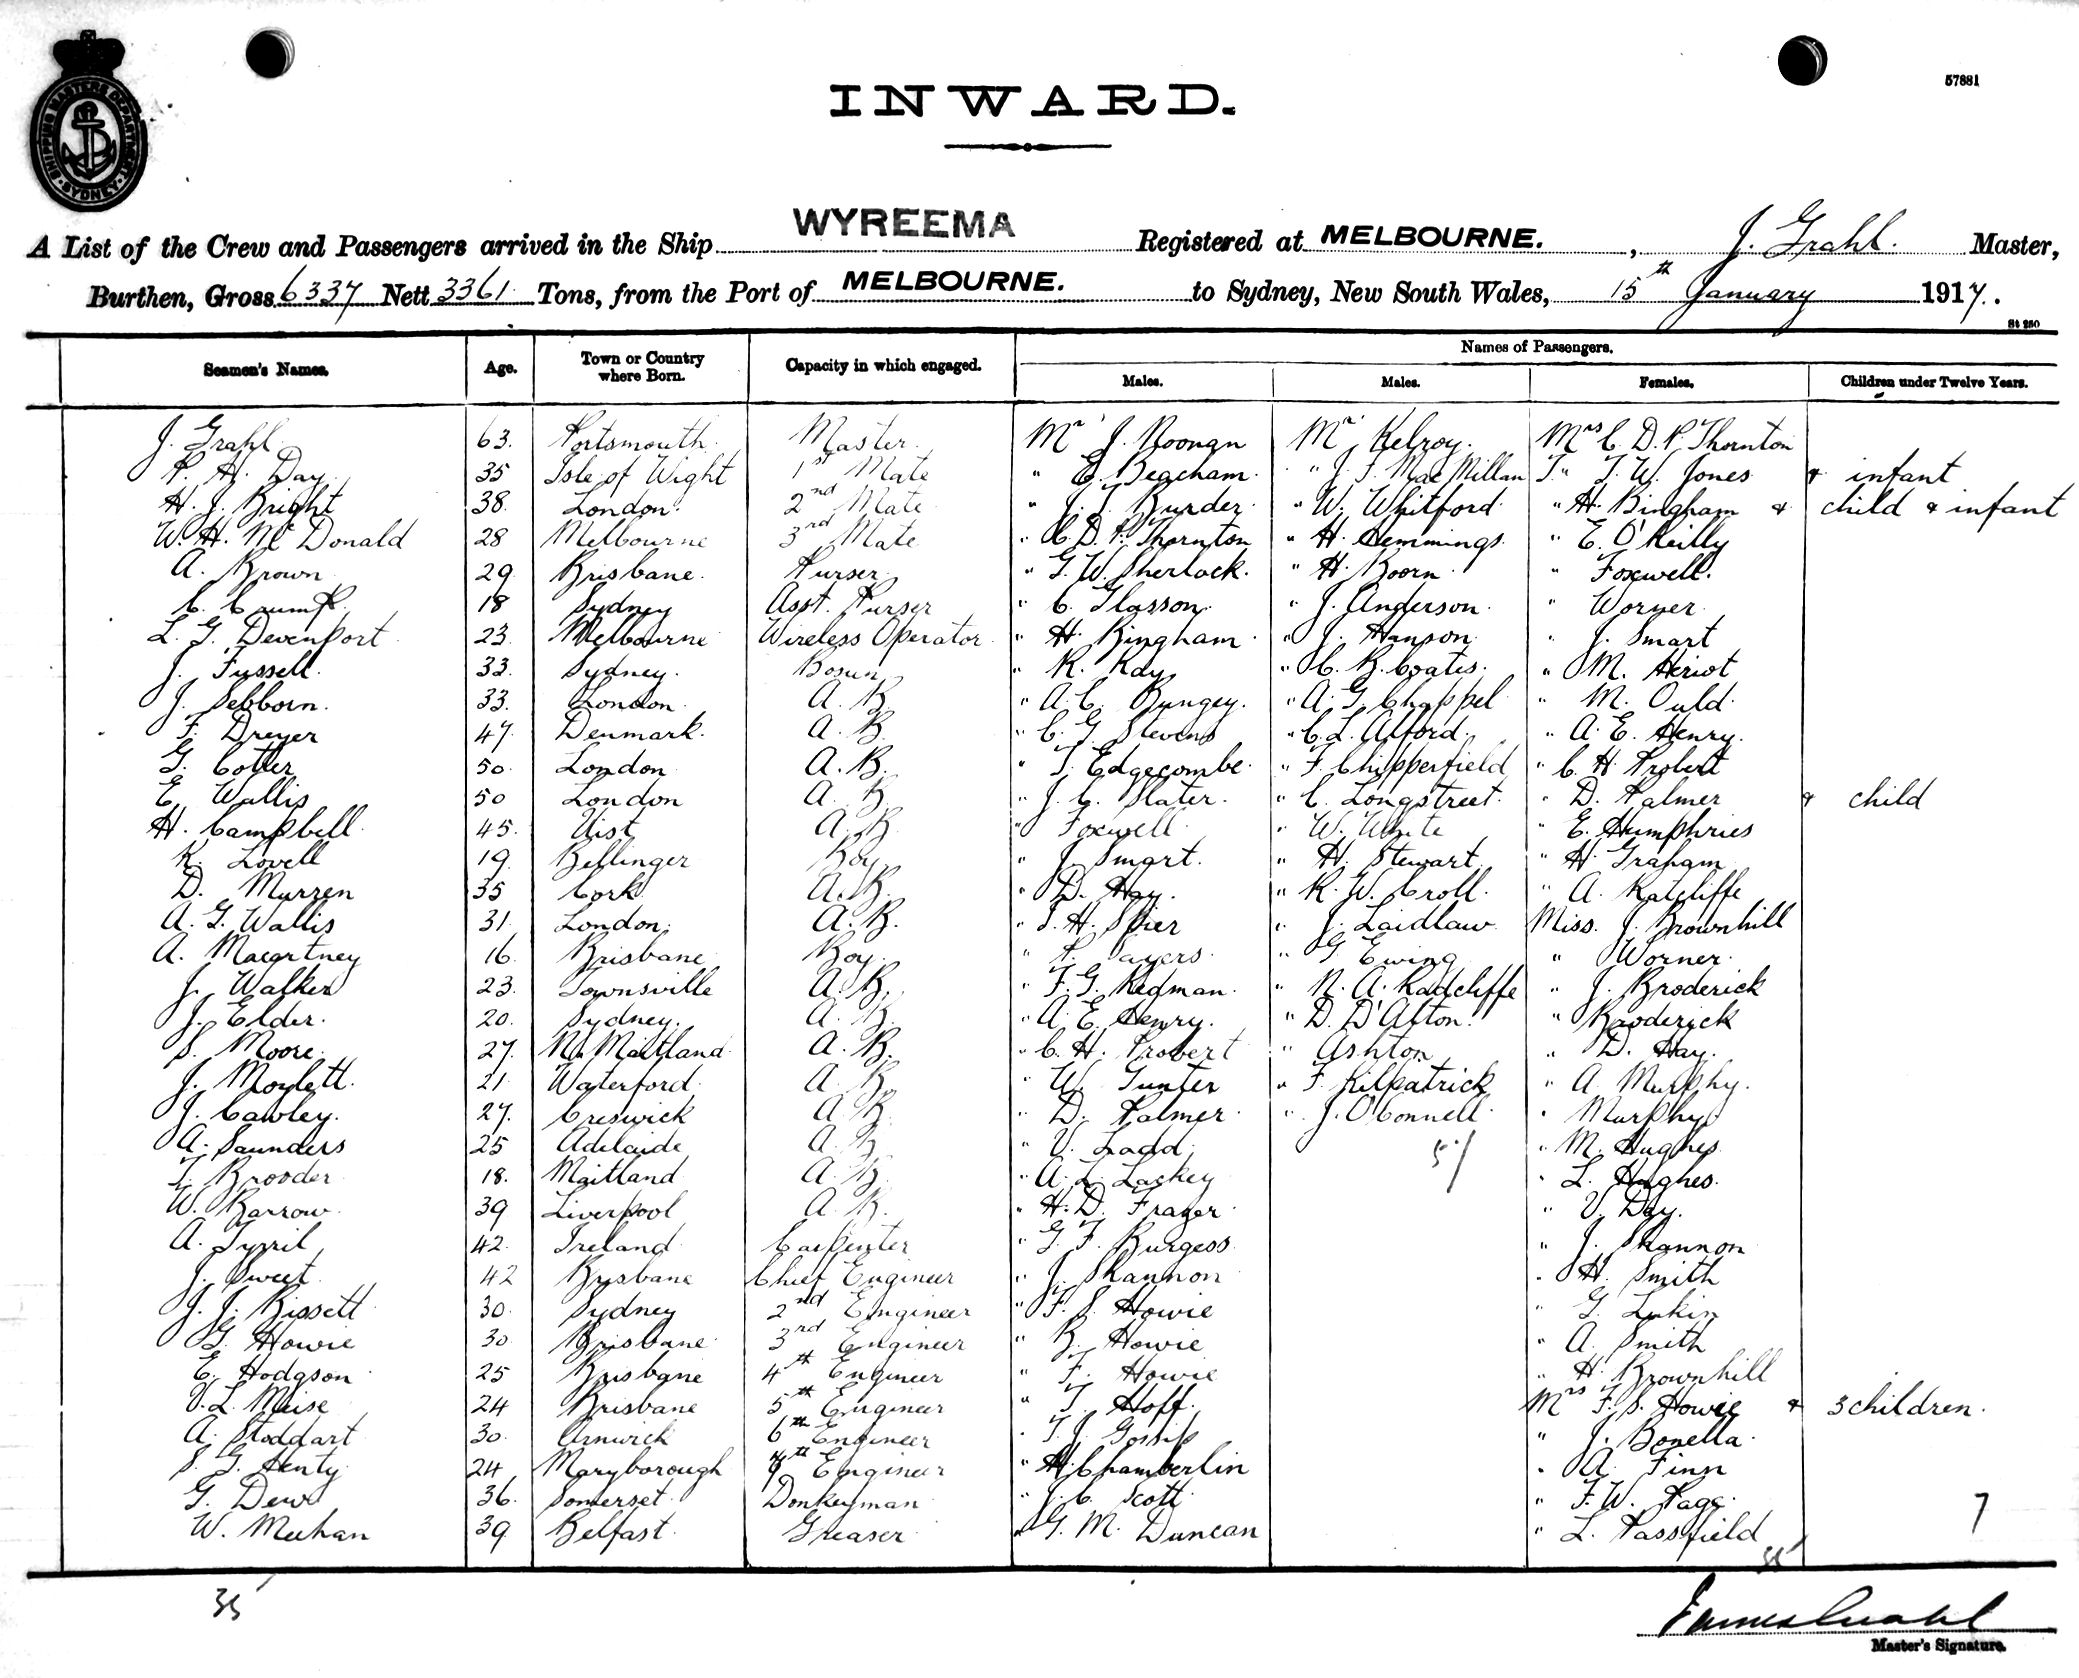 SHIPPING MASTERS DEPARTMENT SYDNEY
57881
INWARD.
A List of the Crew and Passengers arrived in the Ship WYREEMA Registered at MELBOURNE. , J. Grahl. Master,
Burthen, Gross 6337 Nett 3361 Tons, from the Port of MELBOURNE. to Sydney, New South Wales, 15th January 1917.
St 250
Names of Passengers.
Seamen's Names. Age. Town or Country where Born. Capacity in which engaged. Males. Males. Females. Children under Twelve Years.
J. Grahl. 63. Portsmouth. Master. Mr J. Noonan Mr Kelroy. Mrs C. D. P. Thornton
P. H. Day. 35 Isle of Wight 1st Mate " E. Beacham. " J. F. MacMillan " T. W. Jones & infant
H. J. Bright 38. London. 2nd Mate " J. J. Burder. " W. Whitford " H. Bingham & child & infant
W. H. Mc Donald 28 Melbourne 3rd Mate " C. D. P. Thornton " H. Hemmings. " E. O'Reilly
A. Brown 29 Brisbane. Purser " G. W. Sherlock. " H. Boorn " Foxwell.
C. Crump. 18 Sydney Asst. Purser " C. Glasson. " J. Anderson. " Worner.
L. G. Devenport 23. Melbourne Wireless Operator " H. Bingham. " J. Hanson. " J. Smart
J. Fussell. 33. Sydney. Bosun " R. Kay " C. B. Coates. " M. Heriot
J. Sebborn. 33. London. A. B. " A. C. Bungey. " A. G. Chappel " M. Ould.
F. Dreyer 47. Denmark. A. B. " C. G. Stevens " C. L. Alford. " A. E. Henry.
G. Cotter 50. London A. B. " T. Edgecombe. " F. Chipperfield " C. H. Probert
E. Wallis 50 London A. B. " J. C. Slater. " C. Longstreet. " D. Palmer & child
H. Campbell. 45. Uist A. B. " Foxwell. " W. White " E. Humphries
R. Lovell 19. Bellinger Boy. " J. Smart. " H. Stewart. " H. Graham
D. Murren 35 Cork A. B. " D. Hay. " R. W. Croll. " A. Ratcliffe
A. G. Wallis 31. London. A. B. " T. H. Spier " J. Laidlaw. Miss. J. Brownhill
A. Macartney 16. Brisbane Boy. " P. Sayers. " G. Ewing " Worner.
J. Walker 23. Townsville A. B. " F. G. Redman. " N. A. Radcliffe " J. Broderick
J. Elder. 20. Sydney. A. B. " A. E. Henry. " D. D'Alton. " Broderick
S. Moore. 27. W. Maitland. A. B. " C. H. Probert " Ashton " D. Hay.
J. Moylett. 21 Waterford. A. B. " W. Gunter " F. Kilpatrick " A. Murphy.
J. Cawley. 27. Creswick A. B. " D. Palmer. " J. O'Connell. " Murphy
A. Saunders 25 Adelaide A. B. " V. Ladd. " M. Hughes
T. Brooder 18. Maitland A. B. " A. L. Lackey " L. Hughes.
W. Barrow. 39 Liverpool A. B. " H. D. Frazer. " V. Day.
A. Tyrril 42. Ireland. Carpenter " G. F. Burgess. " J. Shannon
J. Sweet. 42 Brisbane Chief Engineer " J. Shannon " H. Smith
J. J. Bissett 30. Sydney 2nd Engineer " F. S. Howie " G. Lukin
G. Howie 30. Brisbane. 3rd Engineer " B. Howie " A. Smith
E. Hodgson 25 Brisbane 4th Engineer " F. Howie " H. Brownhill
V. L. Meise 24 Brisbane 5th Engineer " T. Hoff. Mrs F. S. Howie & 3 children.
A. Stoddart 30. 6th Engineer " T. J. Gossip " J. Bonella.
S. G. Henty 24 Maryborough 7th Engineer " H. Chamberlin " A. Finn
G. Dew 36. Somerset. Donkeyman " J. C. Scott. " F. W. Page.
W. Meehan 39. Belfast. Greaser. " G. M. Duncan " L. Passfield
51
7
35
35
Master's Signature.